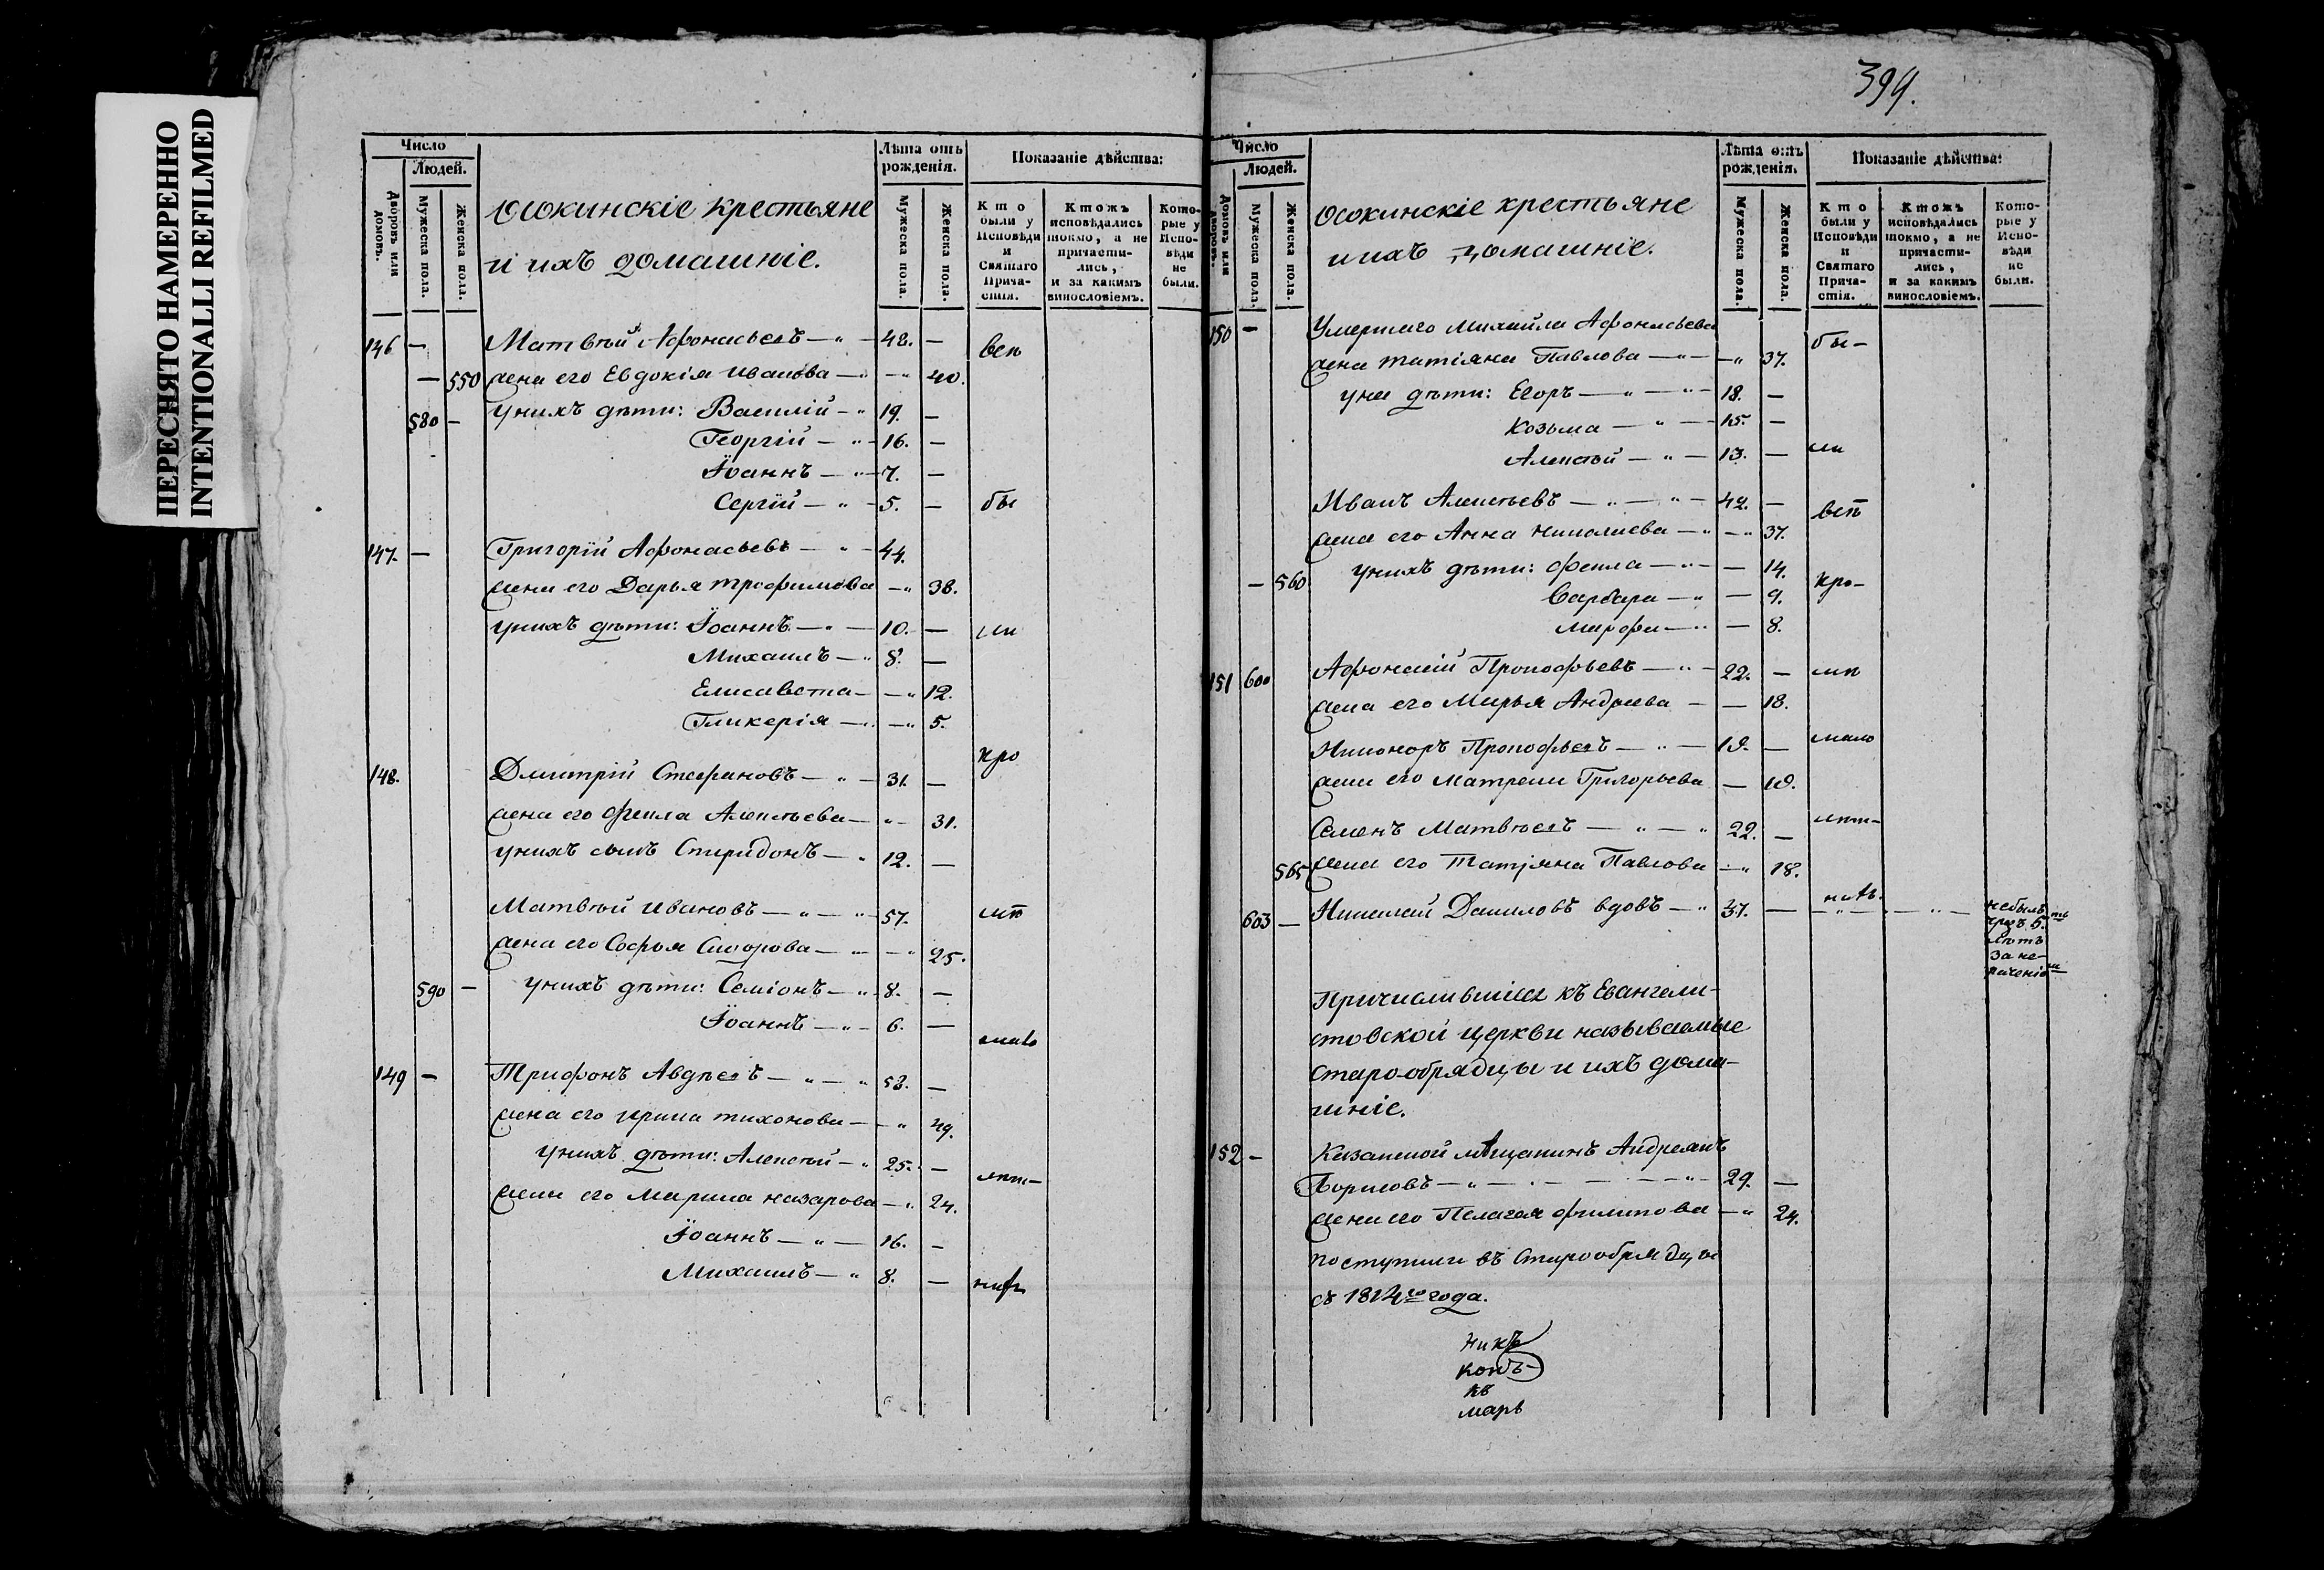 ПЕРЕСНЯТО НАМЕРЕННО
INTENTIONALLI REFILMED
Число
Людей.
Дворовъ или домовъ.
Мужеска пола.
Женска пола.
Осокинскіе крестьяне
и ихъ домашніе.
Лѣта отъ рожденія.
Мужеска пола.
Женска пола.
Показаніе дѣйства:
Кто были у Исповѣди и Святаго Причастія.
Ктожъ исповѣдались токмо, а не причастились, и за какимъ винословіемъ.
Которые у Исповѣди не были.
146 — Матвѣй Афонасьевъ — 42. — всѣ
— 550 жена его Евдокія Иванова — 40.
580 — у нихъ дѣти: Василій — 19. —
Георгій — 16. —
Іоаннъ — 7. —
Сергій — 5. — бы
147. — Григорій Афонасьевъ — 44.
жена его Дарья Трофимова — 38.
у нихъ дѣти: Іоаннъ — 10. — ли
Михаилъ — 8. —
Елисавета — 12.
Гликерія — 5.
кро
148. Дмитрій Стефановъ — 31. —
жена его Фекла Алексѣева — 31.
у нихъ сынъ Спиридонъ — 12. —
Матвѣй Ивановъ — 57. мѣ
жена его Софья Сидорова — 25.
590 — у нихъ дѣти: Семіонъ — 8. —
Іоаннъ — 6. —
мало
149 — Трифонъ Авдѣевъ — 52. —
жена его Ирина Тихонова — 49.
у нихъ дѣти: Алексѣй — 25. — лѣт-
жена его Марина Назарова — 24.
Іоаннъ — 16. —
Михаилъ — 8. — нихъ
394.
Число
Людей.
Домовъ или дворовъ.
Мужеска пола.
Женска пола.
Осокинскіе крестьяне
и ихъ домашніе.
Лѣта отъ рожденія.
Мужеска пола.
Женска пола.
Показаніе дѣйства:
Кто были у Исповѣди и Святаго Причастія.
Ктожъ исповѣдались токмо, а не причастились, и за какимъ винословіемъ.
Которые у Исповѣди не были.
150 — Умершаго Михаила Афонасьева
жена Татіяна Павлова — 37. бы-
у нея дѣти: Егоръ — 18. —
Козьма — 15. —
Алексѣй — 13. — ли
Иванъ Алексѣевъ — 42. — всѣ
жена его Анна Николаева — 37.
— 560 у нихъ дѣти: Фекла — 14. кро-
Варвара — 9.
Марфа — 8.
151 600 Афонасій Прокофьевъ — 22. — мѣ
жена его Марья Андреева — 18.
Никоноръ Прокофьевъ — 19. — мало
жена его Матрена Григорьева — 19.
Семенъ Матвѣевъ — 22. — лѣт-
565 жена его Татіяна Павлова — 18.
603 — Николай Даниловъ вдовъ — 37. — нихъ
небылъ
чрезъ 5ть
лѣтъ
за не-
раченіемъ
Причислившіеся къ Евангели-
стовской церкви называемые
старообрядцы и ихъ дома-
шніе.
152 — Казанской мѣщанинъ Андреянъ
Борисовъ — 29. —
жена его Пелагея Филипова — 24.
поступили въ старообрядцы
съ 1814го года.